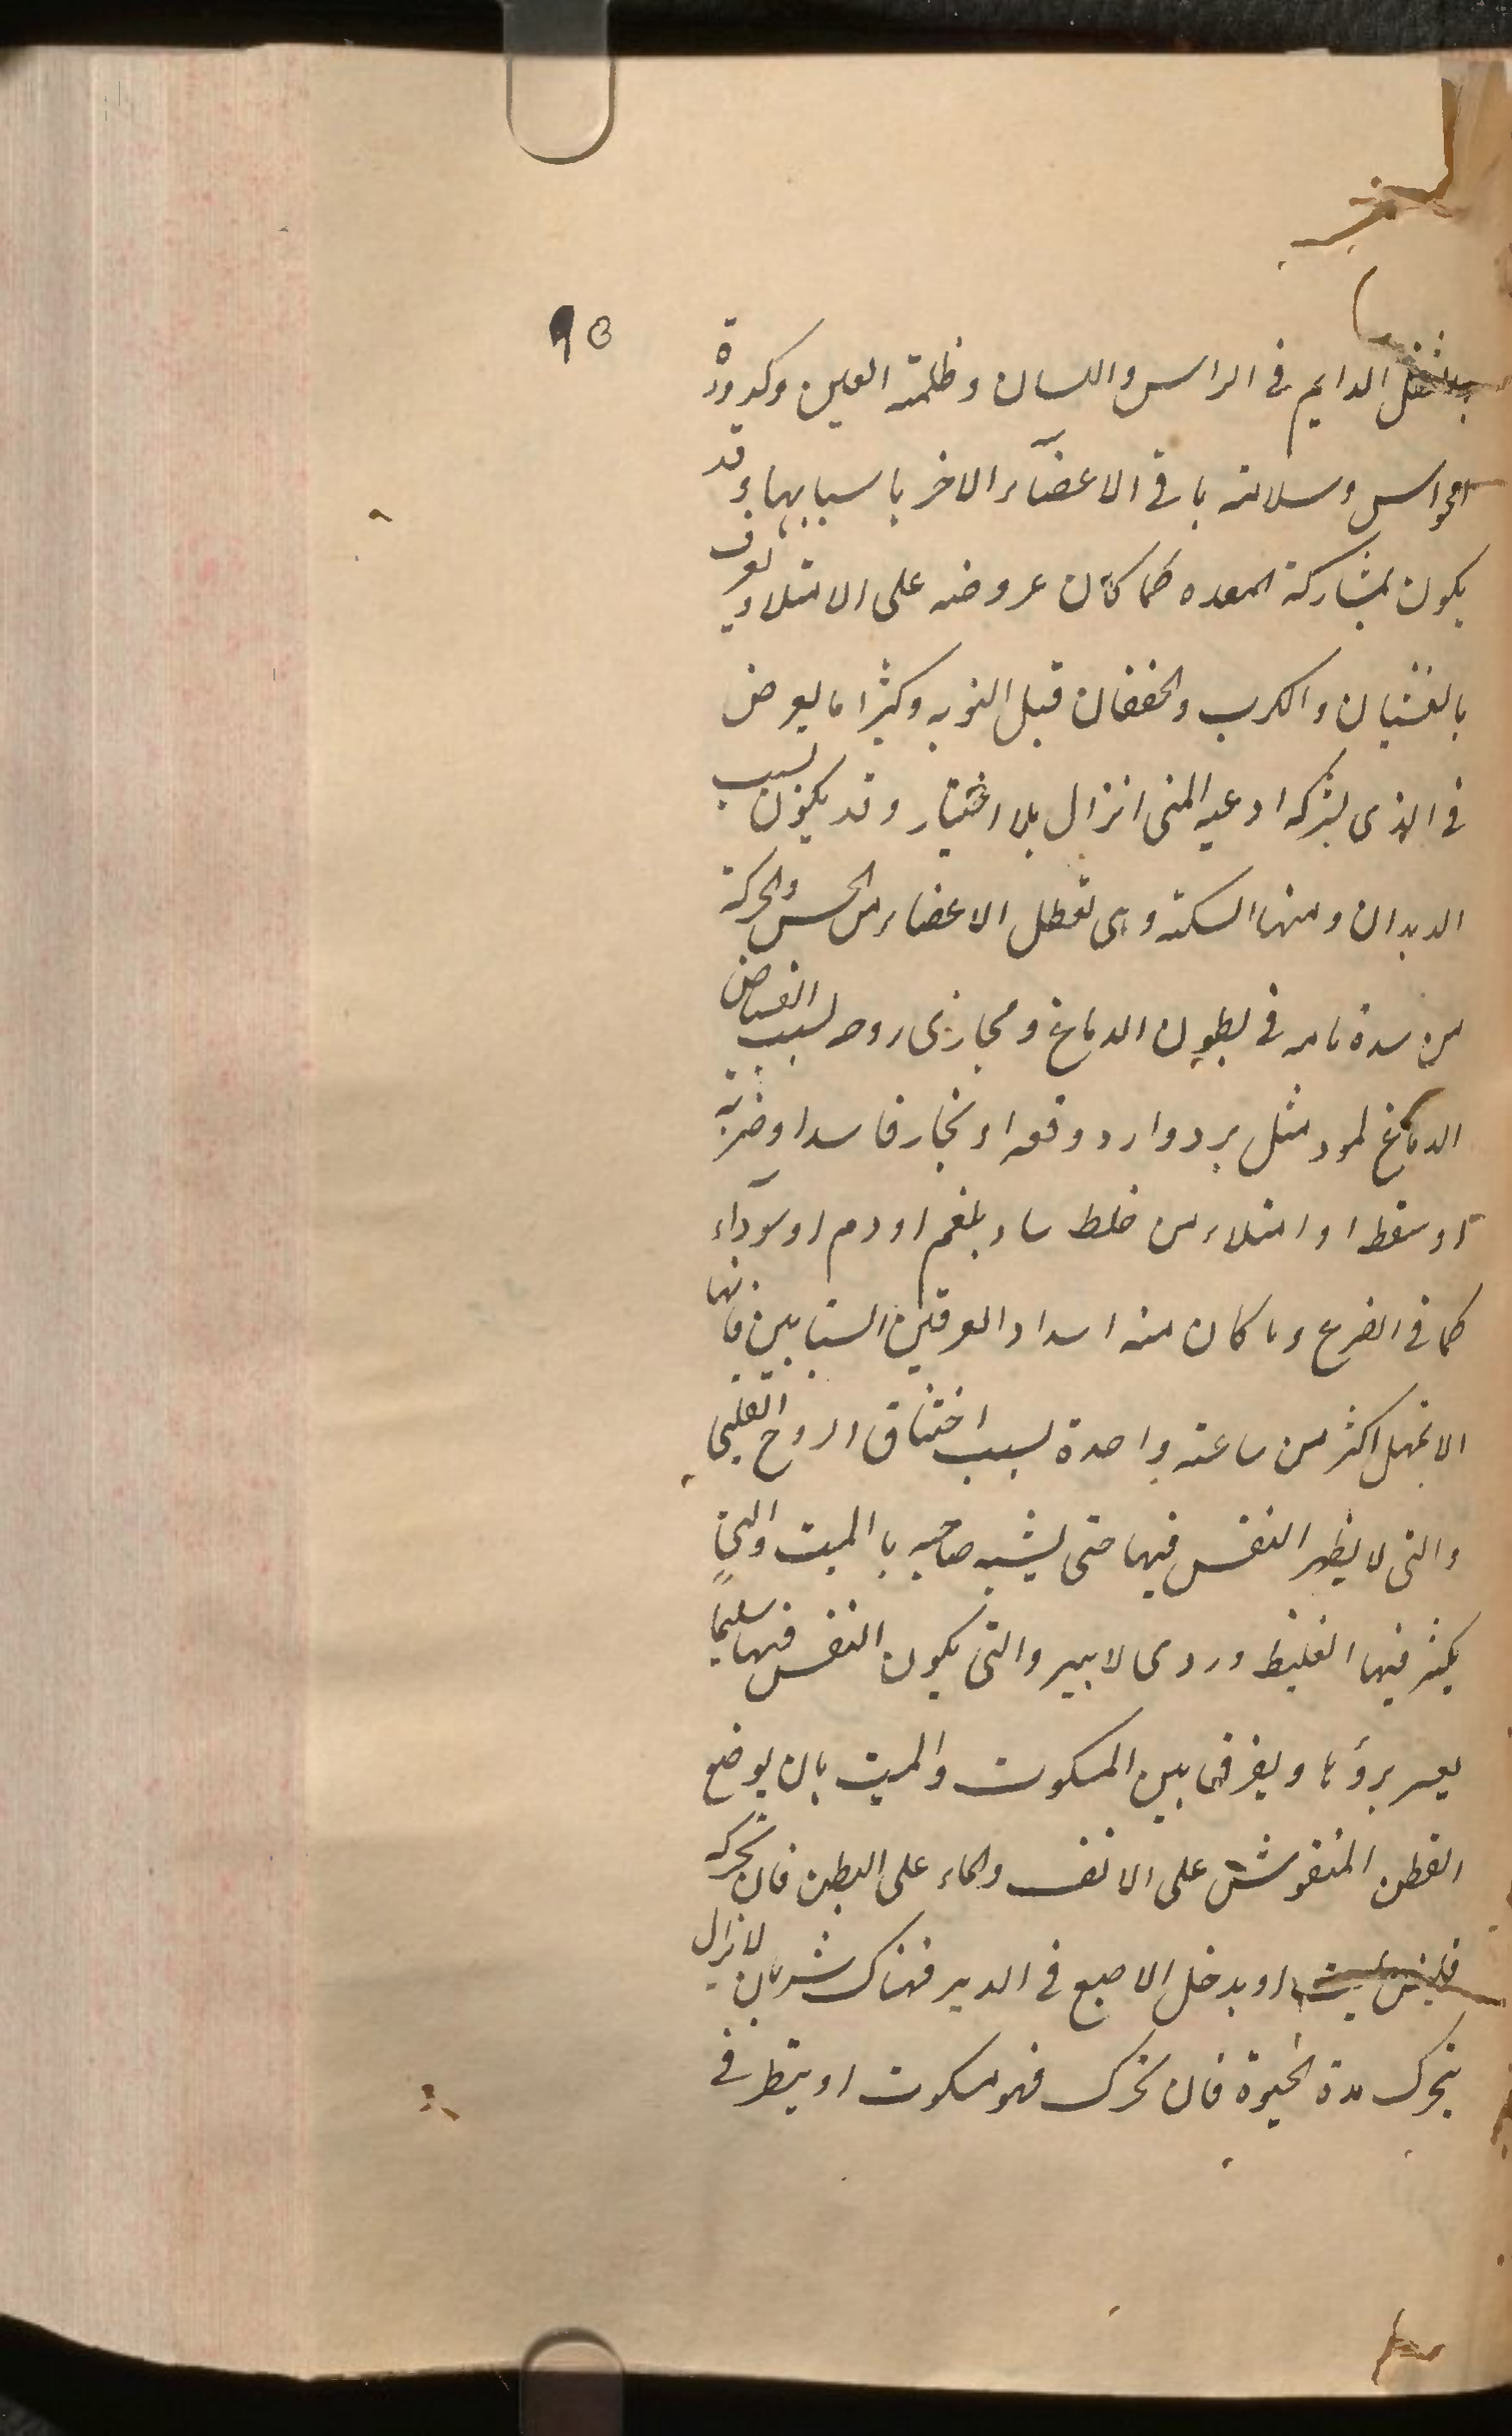 ٩٥
بالثقل الدايم فى الراس واللسان وظلمة العين وكدورة
الحواس وسلامة باقى الاعضآء الاخر باسبابها وقد
يكون بمشاركة المعده كما كان عروضه على الامتلاء ويعرف
بالغشيان والكرب والخفقان قبل النوبه وكثيرا ما يعرض
فى الذى بشركه اوعيه المنى انزال بلا اختيار وقد يكون بسبب
الديدان ومنها السكتة وهى تعطل الاعضاء من الحس والحركة
من سدة تامه فى بطون الدماغ ومجارى روحه بسبب انقباض
الدماغ لمود مثل برد وارد وقعه او بخار فاسد او ضربة
او سقطه او امتلاء من خلط ساد بلغم او دم او سودآء
كما فى الصرع وما كان منه اسداد العرقين السباتيين فانها
لا تمهل اكثر من ساعة واحدة بسبب اختناق الروح القلبى
والتى لا يظهر النفس فيها حتى يشبه صاحبه بالميت والتى
يكثر فيها الغطيط وردى لا يبرء والتى يكون النفس فيها سليماً
يعسر برؤها ويفرق بين المسكوت والميت بان يوضع
القطن المنفوش على الانف والماء على البطن فان تحركه
فليس بميت او يدخل الاصبع فى الدبر فهناك شريان لا يزال
يتحرك مدة الحيوة فان تحرك فهو مسكوت او ينظر فى